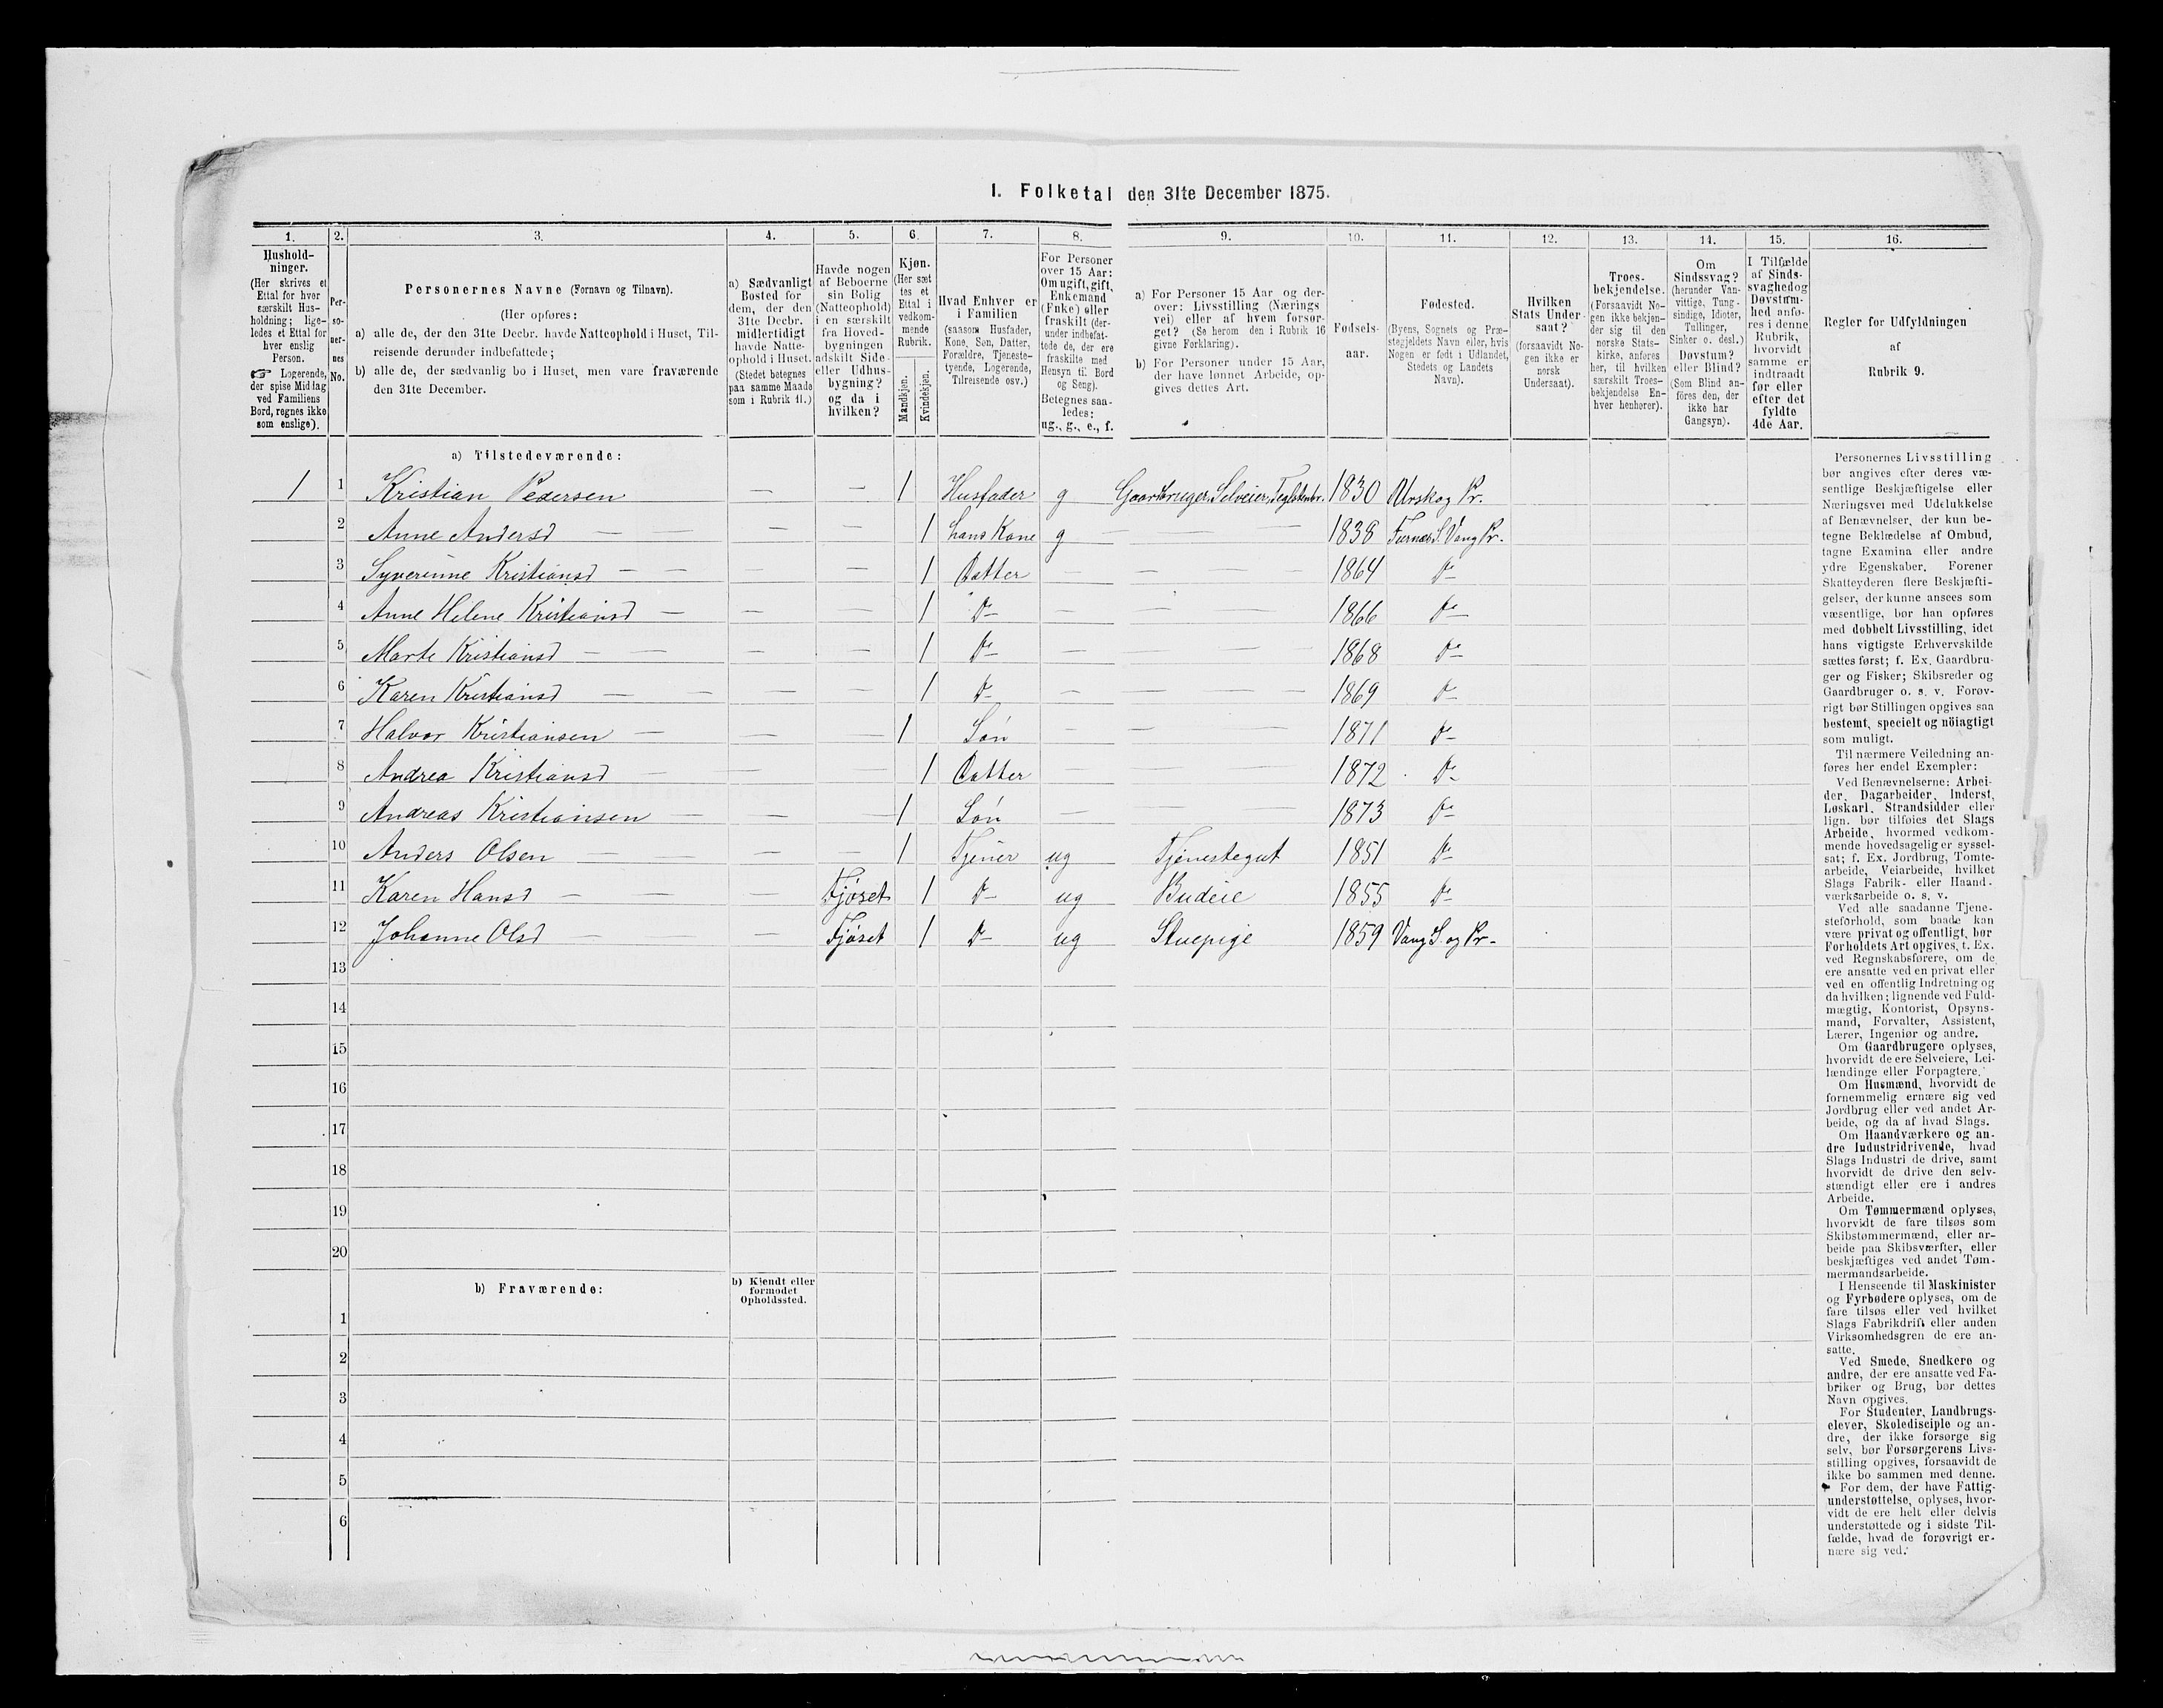 I. Folketal den 31te December 1875.
1. 2. 3. 4. 5. 6. 7. 8. 9. 10. 11. 12. 13. 14. 15. 16.
Hushold-
ninger.
(Her skrives et
Ettal for hver
særskilt Hus-
holdning; lige-
ledes et Ettal for
hver enslig
Person.
☞ Logerende,
der spise Middag
ved Familiens
Bord, regnes ikke
som enslige).
Per-
so-
ner-
nes
No.
Personernes Navne (Fornavn og Tilnavn).
(Her opføres:
a) alle de, der den 31te Decbr. havde Natteophold i Huset, Til-
reisende derunder indbefattede;
b) alle de, der sædvanlig bo i Huset, men vare fraværende
den 31te December.
a) Sædvanligt
Bosted for
dem, der den
31te Decbr.
midlertidigt
havde Natte-
ophold i Huset.
(Stedet betegnes
paa samme Maade
som i Rubrik 11.)
Havde nogen
af Beboerne
sin Bolig
(Natteophold)
i en særskilt
fra Hoved-
bygningen
adskilt Side-
eller Udhus-
bygning?
og da i
hvilken?
Kjøn.
(Her sæt
tes et
Ettal i
vedkom-
mende
Rubrik.
Mandkjøn.
Kvindekjøn.
Hvad Enhver er
i Familien
(saasom Husfader,
Kone, Søn, Datter,
Forældre, Tjeneste-
tyende, Logerende,
Tilreisende osv.)
For Personer
over 15 Aar:
Om ugift, gift,
Enkemand
(Enke) eller
fraskilt (der-
under indbefat-
tede de, der ere
fraskilte med
Hensyn til Bord
og Seng).
Betegnes saa-
ledes:
ug., g., e., f.
a) For Personer 15 Aar og der-
over: Livsstilling (Nærings
vei) eller af hvem forsør-
get? (Se herom den i Rubrik 16
givne Forklaring).
b) For Personer under 15 Aar,
der have lønnet Arbeide, op-
gives dettes Art.
Fødsels-
aar.
Fødested.
(Byens, Sognets og Præ-
stegjeldets Navn eller, hvis
Nogen er født i Udlandet,
Stedets og Landets
Navn).
Hvilken
Stats Under-
saat?
(forsaavidt No-
gen ikke er
norsk
Undersaat).
Troes-
bekjendelse.
(Forsaavidt No-
gen ikke bekjen-
der sig til den
norske Stats-
kirke, anføres
her, til hvilken
særskilt Troes-
bekjendelse En-
hver henhører).
Om
Sindssvag?
(herunder Van-
vittige, Tung-
sindige, Idioter,
Tullinger,
Sinker o. desl.)
Døvstum?
eller Blind?
(Som Blind an-
føres den, der
ikke har
Gangsyn).
I Tilfælde
af Sinds-
svaghed og
Døvstum-
hed anfø-
res i denne
Rubrik,
hvorvidt
samme er
indtraadt
før eller
efter det
fyldte
4de Aar.
Regler for Udfyldningen
af
Rubrik 9.
a) Tilstedeværende:
1 1 Kristian Pedersen — — 1 Husfader g Gaardbruger, Selveier, 1830 Urskog Pr.
2 Anne Andersd — — — — 1 hans Kone g — — 1838 Furnes S. Vang Pr.
3 Syverinne Kristiansd — — — — 1 Datter — — — — 1864 Do
4 Anne Helene Kristiansd — — — 1 Do — — — — 1866 Do
5 Marte Kristiansd — — — — 1 Do — — — — 1868 Do
6 Karen Kristiansd — — — — 1 Do — — — — 1869 Do
7 Halvor Kristiansen — — — 1 Søn — — — — 1871 Do
8 Andrea Kristiansd — — — 1 Datter — — — — 1872 Do
9 Andreas Kristiansen — — — 1 Søn — — — 1873 Do
10 Anders Olsen — — — — 1 Tjener ug Tjenestegut 1851 Do
11 Karen Hansd — — — Fjøset 1 Do ug Budeie 1855 Do
12 Johanne Olsd — — — Fjøset 1 Do ug Stuepige 1859 Vang S. og Pr.
13
14
15
16
17
18
19
20
b) Fraværende:
b) Kjendt eller
formodet
Opholdssted.
1
2
3
4
5
6
Personernes Livsstilling
bør angives efter deres væ-
sentlige Beskjæftigelse eller
Næringsvei med Udelukkelse
af Benævnelser, der kun be-
tegne Beklædelse af Ombud,
tagne Examina eller andre
ydre Egenskaber. Forener
Skatteyderen flere Beskjæfti-
gelser, der kunne ansees som
væsentlige, bør han opføres
med dobbelt Livsstilling, idet
hans vigtigste Erhvervskilde
sættes først; f. Ex. Gaardbru-
ger og Fisker; Skibsreder og
Gaardbruger o. s. v. Forøv-
rigt bør Stillingen opgives saa
bestemt, specielt og nöiagtigt
som muligt.
Til nærmere Veiledning an-
føres her endel Exempler:
Ved Benævnelserne: Arbei-
der, Dagarbeider, Inderst,
Løskarl, Strandsidder eller
lign. bør tilføies det Slags
Arbeide, hvormed vedkom-
mende hovedsagelig er syssel-
sat; f. Ex. Jordbrug, Tomte-
arbeide, Veiarbeide, hvilket
Slags Fabrik- eller Haand-
værksarbeide o. s. v.
Ved alle saadanne Tjene-
steforhold, som baade kan
være privat og offentligt, bør
Forholdets Art opgives, t. Ex.
ved Regnskabsførere, om de
ere ansatte ved en privat eller
ved en offentlig Indretning og
da hvilken; lignende ved Fuld-
mægtig, Kontorist, Opsyns-
mand, Forvalter, Assistent,
Lærer, Ingeniør og andre.
Om Gaardbrugere oplyses,
hvorvidt de ere Selveiere, Lei-
lændinge eller Forpagtere.
Om Husmænd, hvorvidt de
fornemmelig ernære sig ved
Jordbrug eller ved andet Ar-
beide, og da af hvad Slags.
Om Haandværkere og an-
dre Industridrivende, hvad
Slags Industri de drive, samt
hvorvidt de drive den selv-
stændigt eller ere i andres
Arbeide.
Om Tømmermænd oplyses,
hvorvidt de fare tilsøs som
Skibstømmermænd, eller ar-
beide paa Skibsværfter, eller
beskjæftiges ved andet Tøm-
mermandsarbeide.
I Henseende til Maskinister
og Fyrbødere oplyses, om de
fare tilsøs eller ved hvilket
Slags Fabrikdrift eller anden
Virksomhedsgren de ere an-
satte.
Ved Smede, Snedkere og
andre, der ere ansatte ved Fa-
briker og Brug, bør dettes
Navn opgives.
For Studenter, Landbrugs-
elever, Skoledisciple og an-
dre, der ikke forsørge sig
selv, bør Forsørgerens Livs-
stilling opgives, forsaavidt de
ikke bo sammen med denne.
For dem, der have Fattig-
understøttelse, oplyses, hvor-
vidt de ere helt eller delvis
understøttede og i sidste Til-
fælde, hvad de forøvrigt er-
nære sig ved.